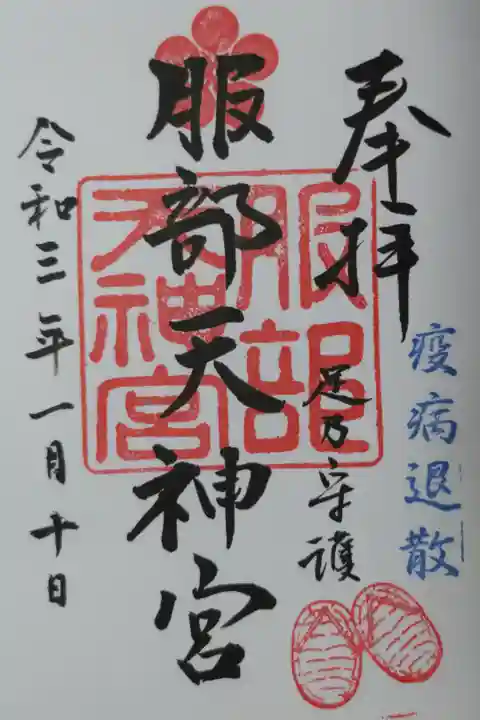 疫病退散
奉拝
足乃守護
服部天神宮
服部天神宮
令和三年一月十日